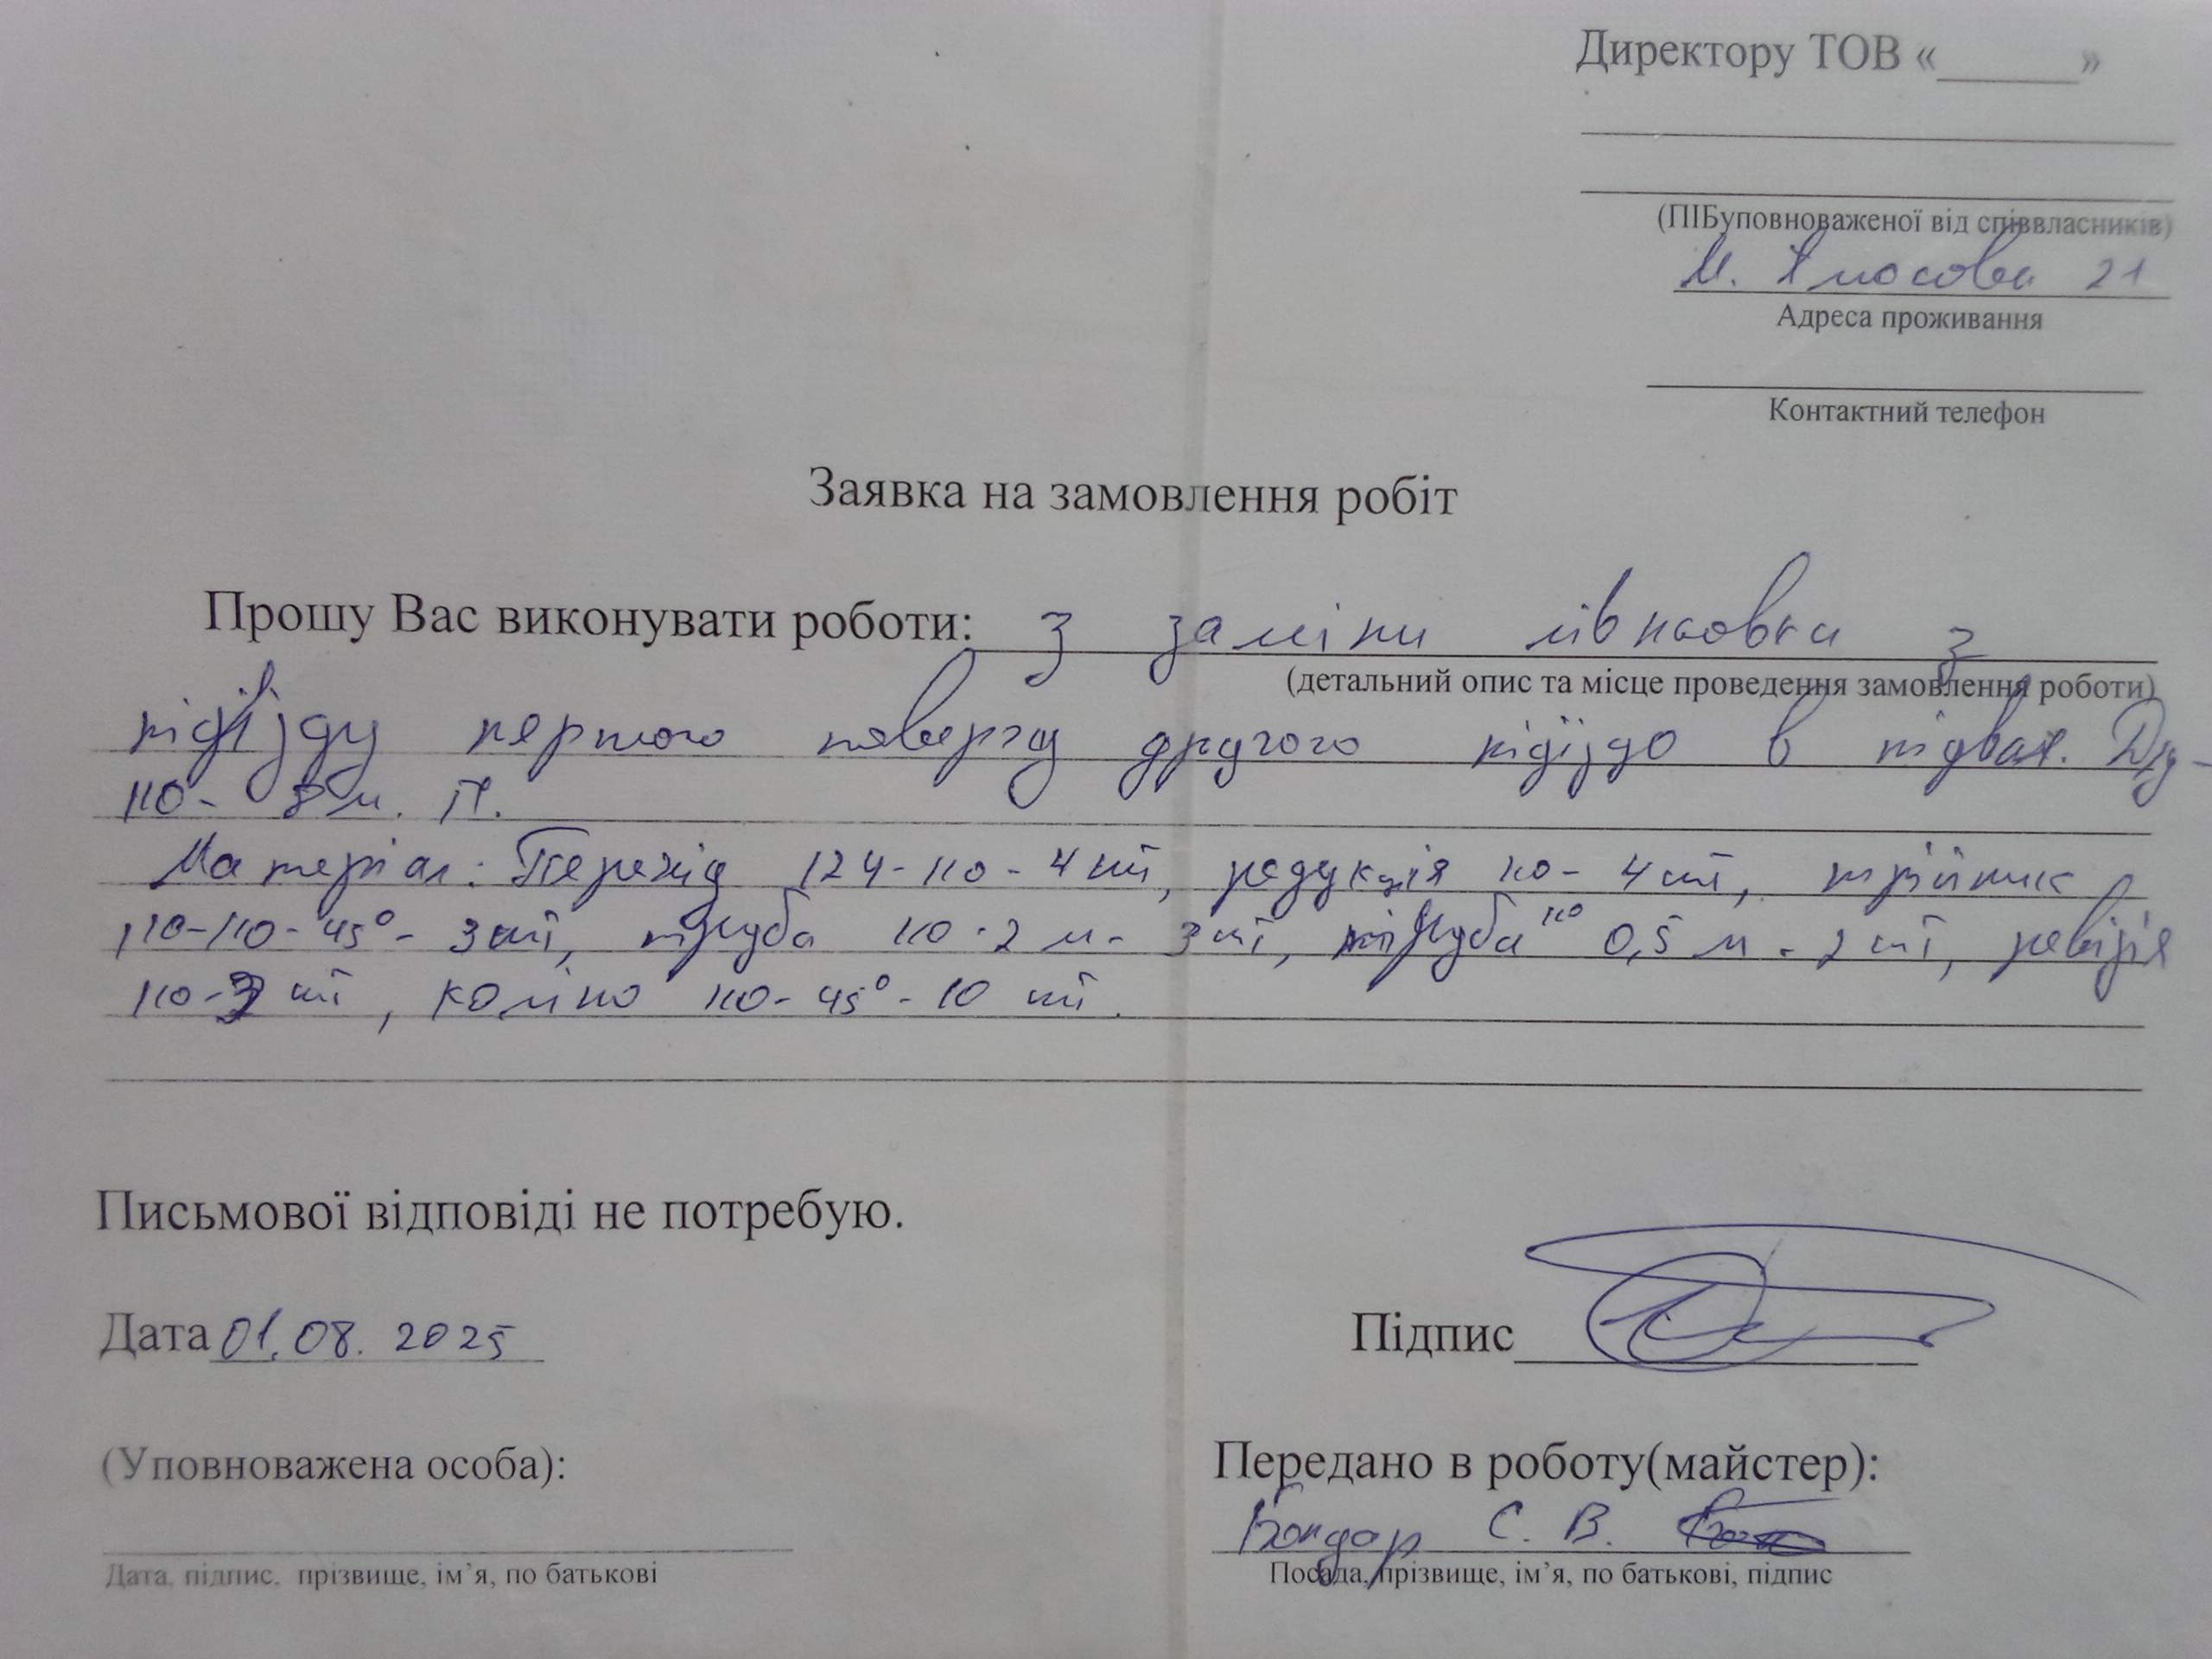 Директору ТОВ «______»
(ПІБуповноваженої від співвласників)
М. Амосова 21
Адреса проживання
Контактний телефон
Заявка на замовлення робіт
Прошу Вас виконувати роботи: з заміни лівньовки з
(детальний опис та місце проведення замовлення роботи)
підїзду першого поверху другого підїзду в підвал. Ду-
110- 8 м. п.
Матеріал: Перехід 124-110-4 шт, редукція 110-4 шт, трійник
110-110-45°- 3 шт, труба 110-2 м- 3 шт, труба 110 0,5 м - 2 шт, ревізія
110- шт, коліно 110-45°-10 шт.
Письмової відповіді не потребую.
Дата 01.08.2025 Підпис
(Уповноважена особа): Передано в роботу(майстер):
Бондар С. В.
Дата, підпис, прізвище, ім’я, по батькові Посада, прізвище, ім’я, по батькові, підпис